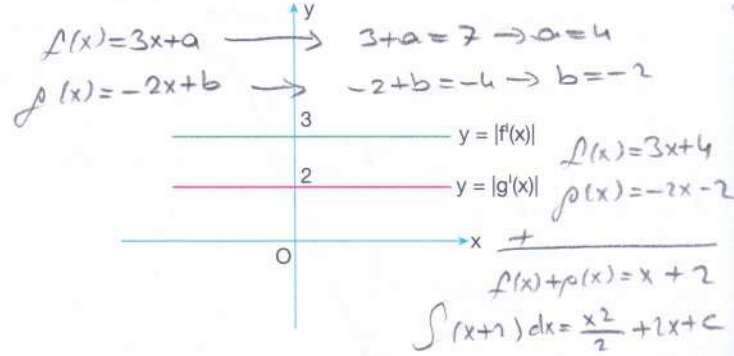 y
f(x)=3x+a → 3+a=7 → a=4
g(x)=-2x+b → -2+b=-4 → b=-2
3
y = |f'(x)|
f(x)=3x+4
2
y = |g'(x)|
g(x)=-2x-2
+
O
x
f(x)+g(x)=x+2
∫(x+2)dx=x2/2+2x+c